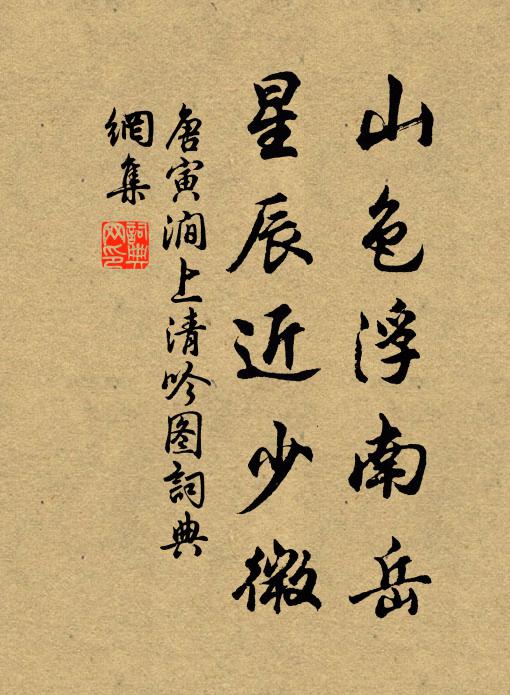 山色浮南岳
星辰近少微
唐寅澗上清吟图詞典
網集
詞典
网印